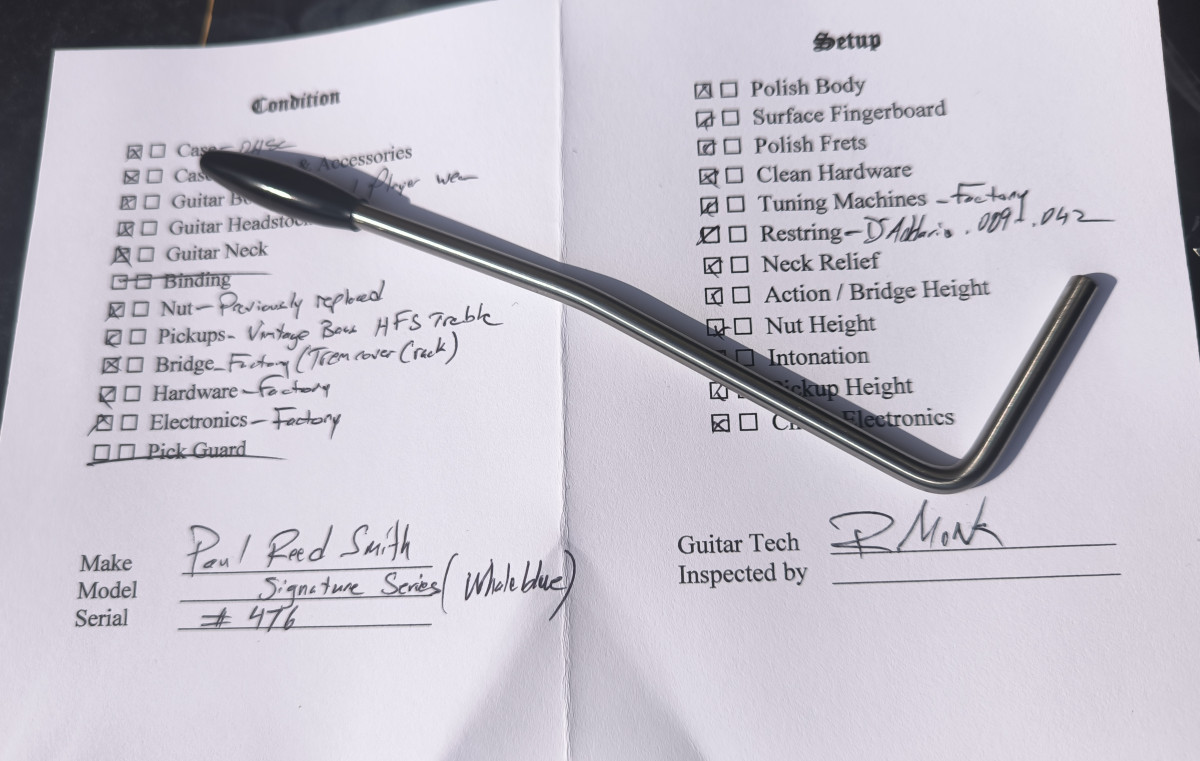 Condition
Case - OHSC
Cas & Accessories
Guitar B Player wear
Guitar Headstoc
Guitar Neck
Binding
Nut - Previously replaced
Pickups - Vintage Bass HFS Treble
Bridge - Factory (Trem cover Crack)
Hardware - Factory
Electronics - Factory
Pick Guard
Make Paul Reed Smith
Model Signature Series (Whaleblue)
Serial # 476
Setup
Polish Body
Surface Fingerboard
Polish Frets
Clean Hardware
Tuning Machines - Factory
Restring - D'Addario .009 - .042
Neck Relief
Action / Bridge Height
Nut Height
Intonation
ickup Height
C Electronics
Guitar Tech R Monk
Inspected by